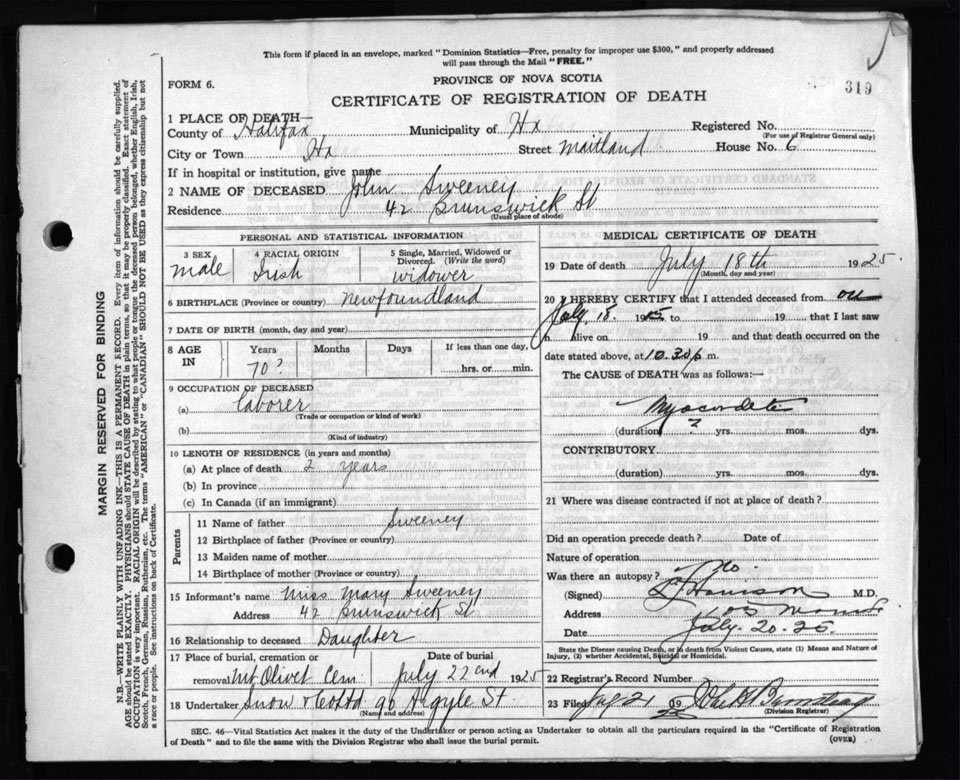 This form if placed in an envelope, marked "Dominion Statistics—Free, penalty for improper use $300," and properly addressed
will pass through the Mail "FREE."
FORM 6.
PROVINCE OF NOVA SCOTIA
319
CERTIFICATE OF REGISTRATION OF DEATH
1 PLACE OF DEATH—
County of Halifax Municipality of Hx Registered No.
(For use of Registrar General only)
City or Town Hx Street Maitland House No. 6
If in hospital or institution, give name
2 NAME OF DECEASED John Sweeney
Residence 42 Brunswick St
(Usual place of abode)
PERSONAL AND STATISTICAL INFORMATION
3 SEX 4 RACIAL ORIGIN 5 Single, Married, Widowed or Divorced. (Write the word)
male Irish widower
6 BIRTHPLACE (Province or country) Newfoundland
7 DATE OF BIRTH (month, day and year)
8 AGE IN Years Months Days If less than one day,
70? hrs. or min.
9 OCCUPATION OF DECEASED
(a) laborer
(Trade or occupation or kind of work)
(b)
(Kind of industry)
10 LENGTH OF RESIDENCE (in years and months)
(a) At place of death 2 years
(b) In province
(c) In Canada (if an immigrant)
Parents
11 Name of father Sweeney
12 Birthplace of father (Province or country)
13 Maiden name of mother
14 Birthplace of mother (Province or country)
15 Informant's name Miss Mary Sweeney
Address 42 Brunswick St.
16 Relationship to deceased Daughter
17 Place of burial, cremation or removal Mt Olivet Cem. Date of burial July 22nd 1925
18 Undertaker Snow & Co Ltd 90 Argyle St
(Name and address)
MEDICAL CERTIFICATE OF DEATH
19 Date of death July 18th 1925.
(Month, day and year)
20 I HEREBY CERTIFY that I attended deceased from on
July 18. 19 to 19 that I last saw
h alive on 19 and that death occurred on the
date stated above, at 10.30 p m.
The CAUSE of DEATH was as follows:—
(duration) ? yrs. mos. dys.
CONTRIBUTORY
(duration) yrs. mos. dys.
21 Where was disease contracted if not at place of death?
Did an operation precede death? Date of
Nature of operation
Was there an autopsy? No.
(Signed) M.D.
Address
Date July. 20. 25.
State the Disease causing Death, or in death from Violent Causes, state (1) Means and Nature of
Injury, (2) whether Accidental, Suicidal or Homicidal.
22 Registrar's Record Number
23 Filed 21 19
(Division Registrar)
SEC. 46—Vital Statistics Act makes it the duty of the Undertaker or person acting as Undertaker to obtain all the particulars required in the "Certificate of Registration
of Death" and to file the same with the Division Registrar who shall issue the burial permit. (OVER)
MARGIN RESERVED FOR BINDING
N.B.—WRITE PLAINLY WITH UNFADING INK—THIS IS A PERMANENT RECORD. Every item of information should be carefully supplied.
AGE should be stated EXACTLY. PHYSICIANS should STATE CAUSE OF DEATH in plain terms, so that it may be properly classified. Exact statement of
OCCUPATION is very important. RACIAL ORIGIN will be described by stating to what people or tongue the deceased person belonged, whether English, Irish,
Scotch, French, German, Russian, Ruthenian, etc. The terms "AMERICAN" or "CANADIAN" SHOULD NOT BE USED as they express citizenship but not
a race or people. See instructions on back of Certificate.